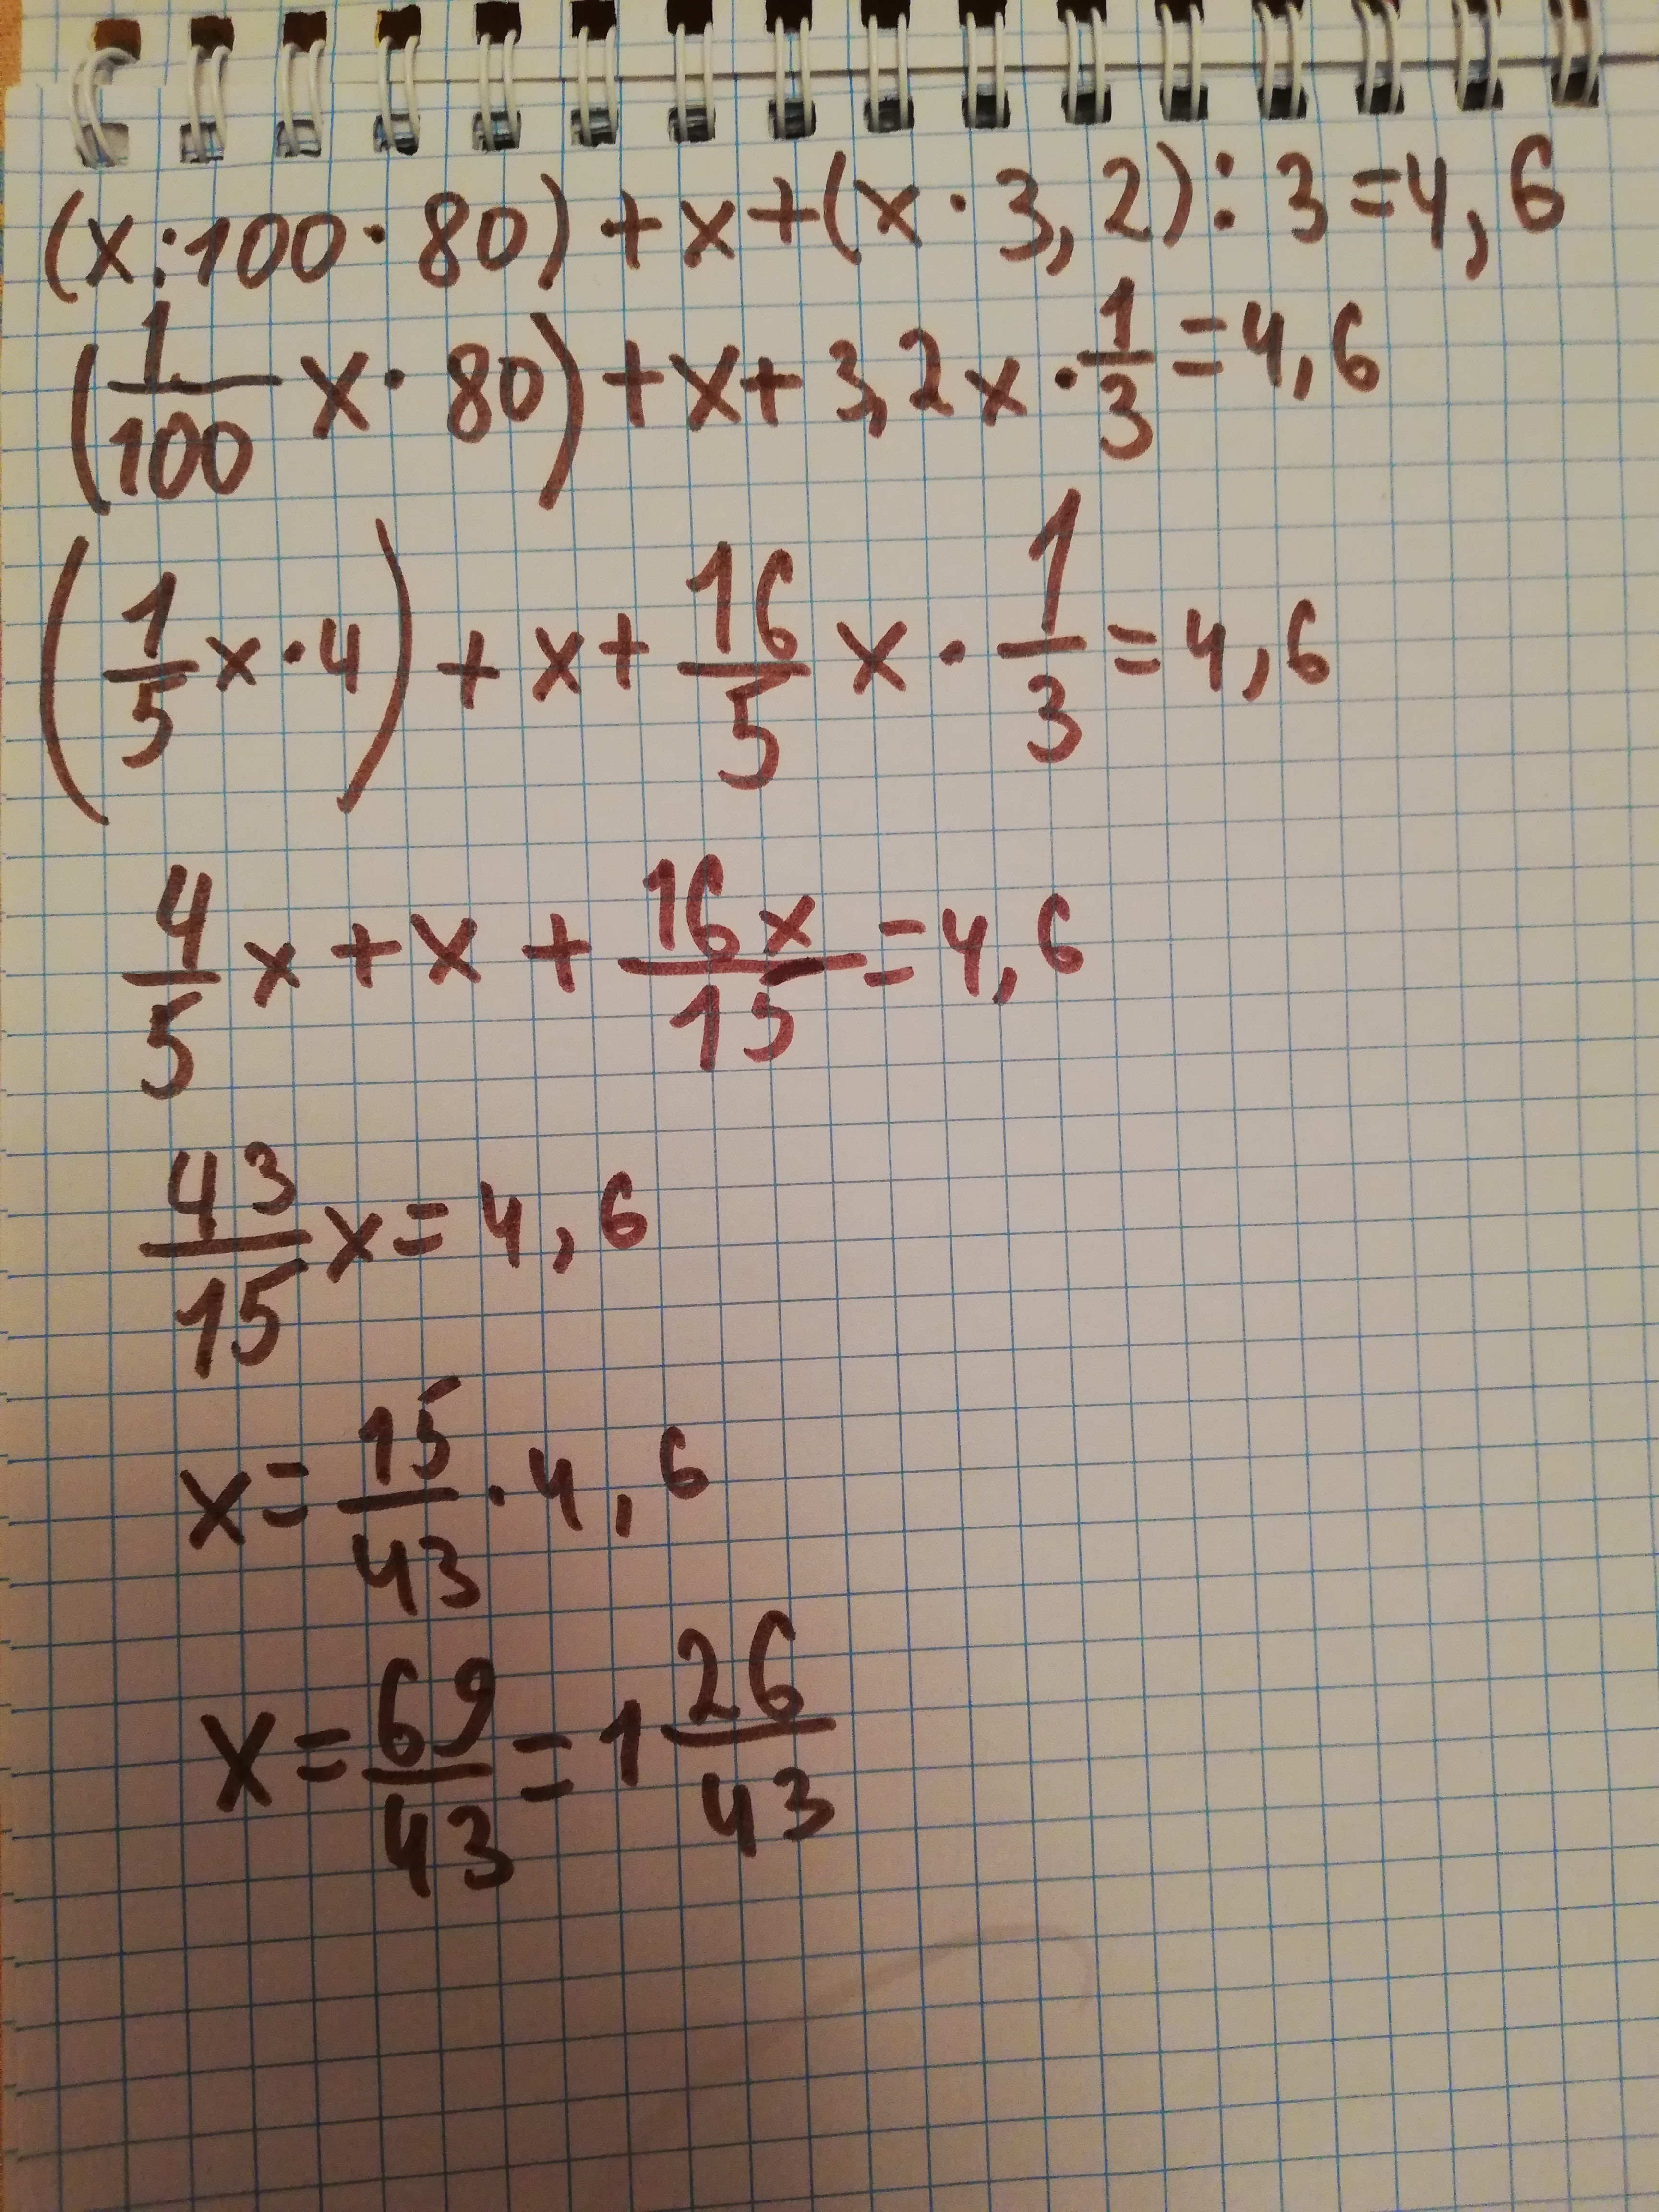 (x:100·80)+x+(x·3,2):3=4,6
(1/100 x·80)+x+3,2x·1/3=4,6
(1/5 x·4)+x+16/5 x·1/3=4,6
4/5 x+x+16x/15=4,6
43/15 x=4,6
x=15/43·4,6
x=69/43=1 26/43